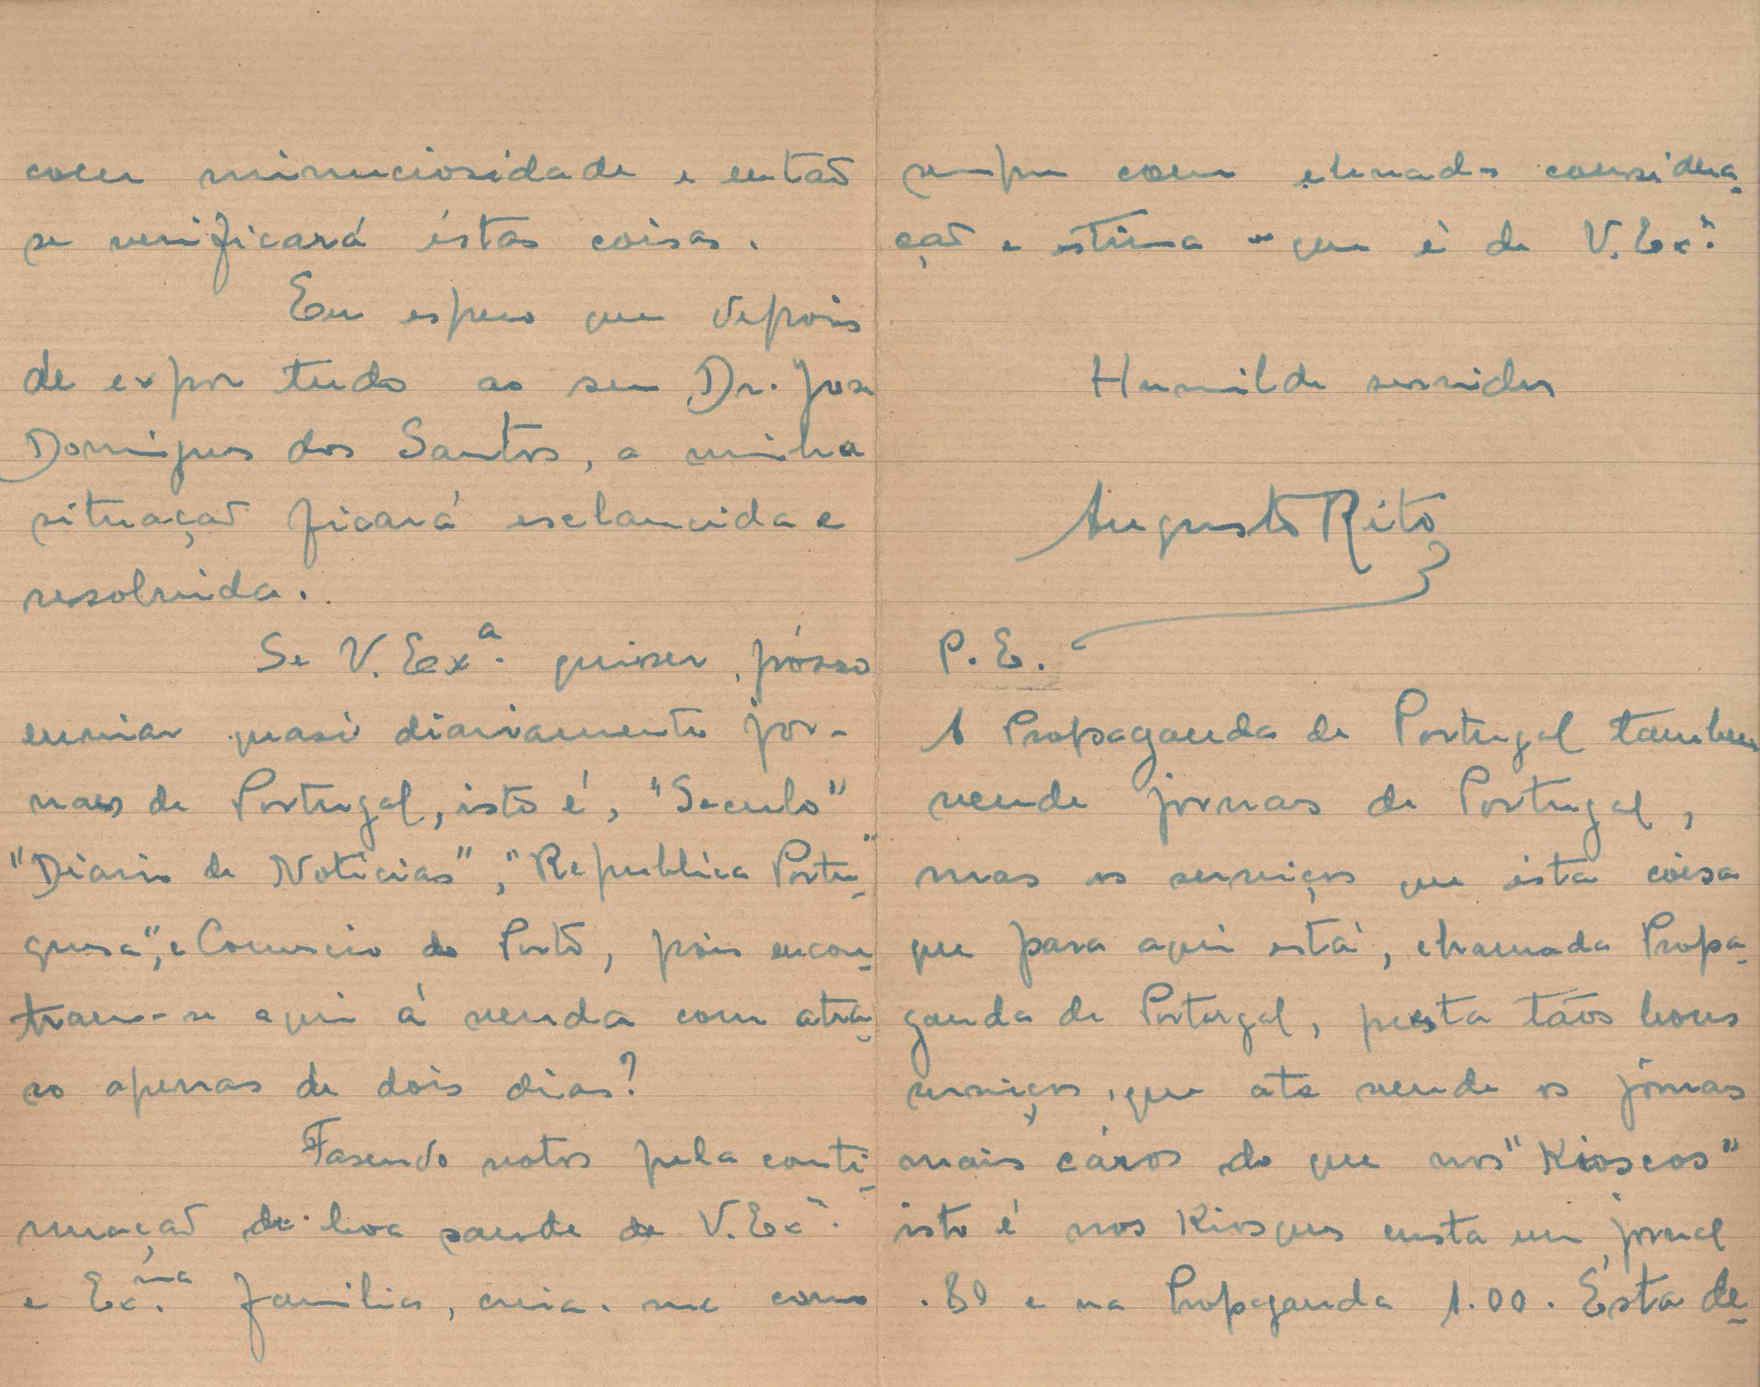 com minuciosidade e então
se verificará éstas coisas.
Eu espero que depois
de expor tudo ao sen Dr. José
Domigues dos Santos, a minha
situação ficará esclarecida e
resolvida.
Se V. Exª. quiser, pósso
enviar quasi diariamente jor-
naes de Portugal, isto é, "Seculo"
"Diario de Noticias", "Republica Portu-
guesa", e Comercio do Porto, pois encon-
tram-se aqui á venda com atra-
so apenas de dois dias?
Fasendo votos pela conti-
nuação de boa saude de V. Exª.
e Ex.ma familia, creia-me como
sempre com elevada considera-
ção e estima que é de V. Exª.
Humilde servidor
Augusto Rito
P. E.
A Propaganda de Portugal tambem
vende jornas de Portugal,
mas os serviços que esta coisa
que para aqui está, chamada Propa-
ganda de Portugal, presta tãos bons
serviços, que ate vende os jornas
mais cáros do que nos "Kioscos"
isto é nos Kiosques custa um jornal
.80 e na Propaganda 1.00. Ésta de-